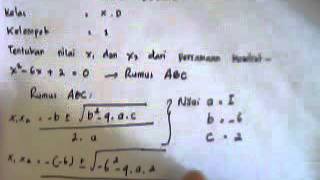 Kelas : X.D
Kelompok : 1
Tentukan nilai x, dan x₂ dari persamaan kuadrat
x²-6x+2=0 → Rumus ABC
Rumus ABC: Nilai a = 1
x₁,x₂ = -b ± √b²-4.a.c / 2.a b = -6
c = 2
x₁,x₂ = -(-6) ± √-6²-4.a.2